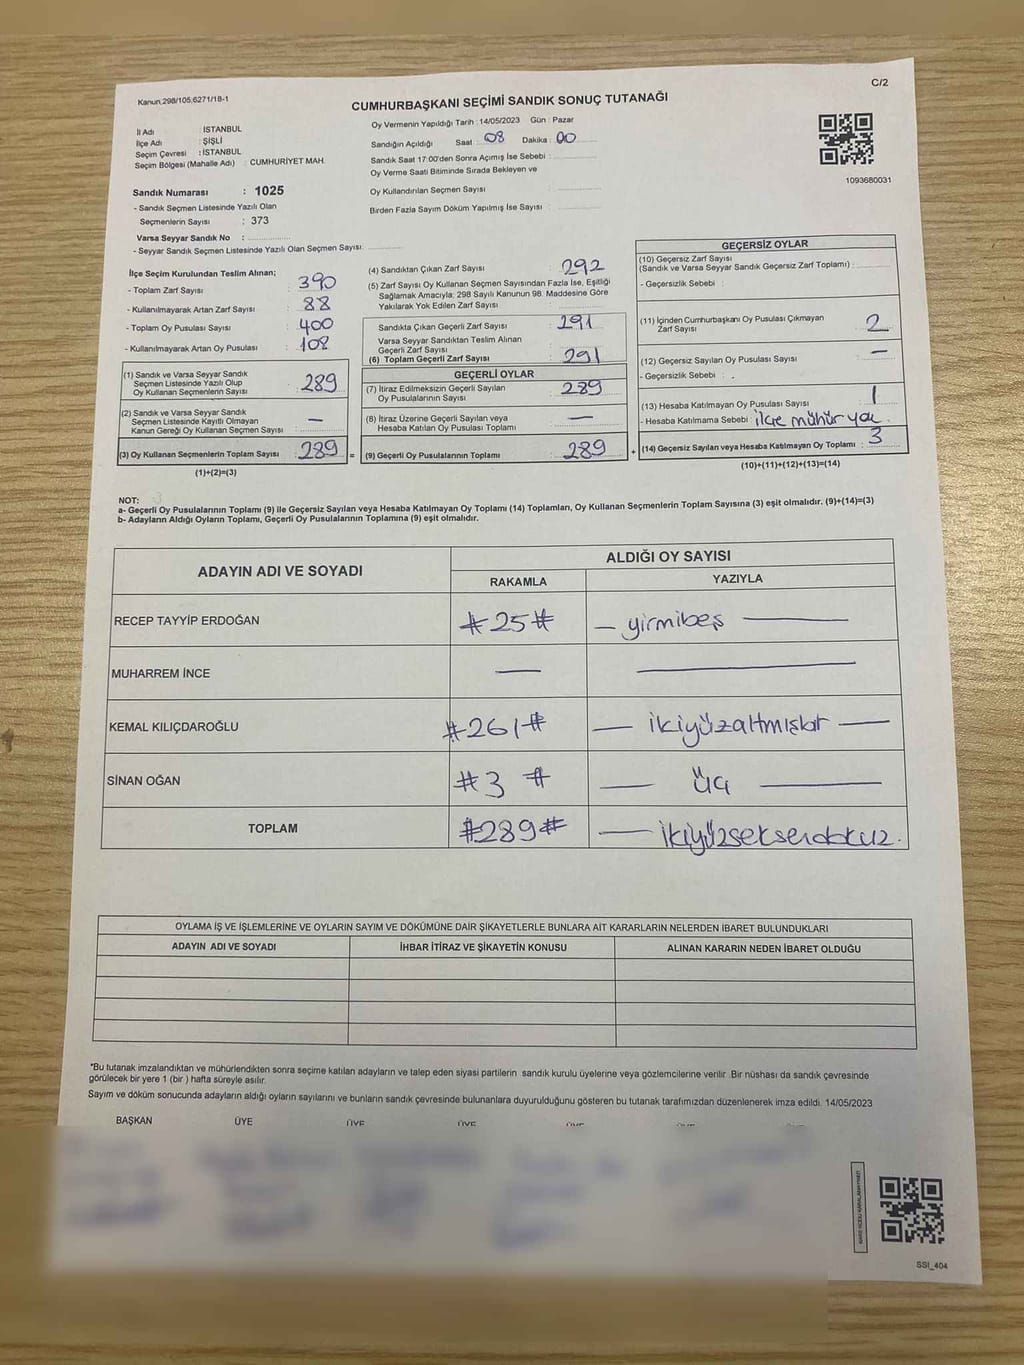 Kanun:298/105,6271/18-1
C/2
CUMHURBAŞKANI SEÇİMİ SANDIK SONUÇ TUTANAĞI
İl Adı : İSTANBUL
İlçe Adı : ŞİŞLİ
Seçim Çevresi : İSTANBUL
Seçim Bölgesi (Mahalle Adı) : CUMHURİYET MAH.
Sandık Numarası : 1025
- Sandık Seçmen Listesinde Yazılı Olan
Seçmenlerin Sayısı : 373
Varsa Seyyar Sandık No :
- Seyyar Sandık Seçmen Listesinde Yazılı Olan Seçmen Sayısı:
Oy Vermenin Yapıldığı Tarih : 14/05/2023 Gün : Pazar
Sandığın Açıldığı Saat 08 Dakika : 00
Sandık Saat 17:00'den Sonra Açımış İse Sebebi :
Oy Verme Saati Bitiminde Sırada Bekleyen ve
Oy Kullandırılan Seçmen Sayısı :
Birden Fazla Sayım Döküm Yapılmış İse Sayısı :
1093680031
İlçe Seçim Kurulundan Teslim Alınan;
- Toplam Zarf Sayısı : 390
- Kullanılmayarak Artan Zarf Sayısı : 88
- Toplam Oy Pusulası Sayısı : 400
- Kullanılmayarak Artan Oy Pusulası : 108
(1) Sandık ve Varsa Seyyar Sandık
Seçmen Listesinde Yazılı Olup
Oy Kullanan Seçmenlerin Sayısı : 289
(2) Sandık ve Varsa Seyyar Sandık
Seçmen Listesinde Kayıtlı Olmayan
Kanun Gereği Oy Kullanan Seçmen Sayısı : —
(3) Oy Kullanan Seçmenlerin Toplam Sayısı : 289
(1)+(2)=(3)
(4) Sandıktan Çıkan Zarf Sayısı : 292
(5) Zarf Sayısı Oy Kullanan Seçmen Sayısından Fazla İse, Eşitliği
Sağlamak Amacıyla; 298 Sayılı Kanunun 98. Maddesine Göre
Yakılarak Yok Edilen Zarf Sayısı :
Sandıkta Çıkan Geçerli Zarf Sayısı : 291
Varsa Seyyar Sandıktan Teslim Alınan
Geçerli Zarf Sayısı :
(6) Toplam Geçerli Zarf Sayısı : 291
GEÇERLİ OYLAR
(7) İtiraz Edilmeksizin Geçerli Sayılan
Oy Pusulalarının Sayısı : 289
(8) İtiraz Üzerine Geçerli Sayılan veya
Hesaba Katılan Oy Pusulası Toplamı : —
= (9) Geçerli Oy Pusulalarının Toplamı : 289
GEÇERSİZ OYLAR
(10) Geçersiz Zarf Sayısı
(Sandık ve Varsa Seyyar Sandık Geçersiz Zarf Toplamı) :
- Geçersizlik Sebebi :
(11) İçinden Cumhurbaşkanı Oy Pusulası Çıkmayan
Zarf Sayısı : 2
(12) Geçersiz Sayılan Oy Pusulası Sayısı : —
- Geçersizlik Sebebi : .
(13) Hesaba Katılmayan Oy Pusulası Sayısı : 1
- Hesaba Katılmama Sebebi : ilçe mühür yok
+ (14) Geçersiz Sayılan veya Hesaba Katılmayan Oy Toplamı : 3
(10)+(11)+(12)+(13)=(14)
NOT:
a- Geçerli Oy Pusulalarının Toplamı (9) ile Geçersiz Sayılan veya Hesaba Katılmayan Oy Toplamı (14) Toplamları, Oy Kullanan Seçmenlerin Toplam Sayısına (3) eşit olmalıdır. (9)+(14)=(3)
b- Adayların Aldığı Oyların Toplamı, Geçerli Oy Pusulalarının Toplamına (9) eşit olmalıdır.
ADAYIN ADI VE SOYADI
ALDIĞI OY SAYISI
RAKAMLA YAZIYLA
RECEP TAYYİP ERDOĞAN #25# — yirmibeş —
MUHARREM İNCE — —
KEMAL KILIÇDAROĞLU #261# — ikiyüzaltmışbir —
SİNAN OĞAN #3 # — üç —
TOPLAM #289# — ikiyüzseksendokuz.
OYLAMA İŞ VE İŞLEMLERİNE VE OYLARIN SAYIM VE DÖKÜMÜNE DAİR ŞİKAYETLERLE BUNLARA AİT KARARLARIN NELERDEN İBARET BULUNDUKLARI
ADAYIN ADI VE SOYADI İHBAR İTİRAZ VE ŞİKAYETİN KONUSU ALINAN KARARIN NEDEN İBARET OLDUĞU
*Bu tutanak imzalandıktan ve mühürlendikten sonra seçime katılan adayların ve talep eden siyasi partilerin sandık kurulu üyelerine veya gözlemcilerine verilir. Bir nüshası da sandık çevresinde
görülecek bir yere 1 (bir) hafta süreyle asılır.
Sayım ve döküm sonucunda adayların aldığı oyların sayılarını ve bunların sandık çevresinde bulunanlara duyurulduğunu gösteren bu tutanak tarafımızdan düzenlenerek imza edildi. 14/05/2023
BAŞKAN ÜYE ÜYE ÜYE ÜYE ÜYE ÜYE
SSI_404